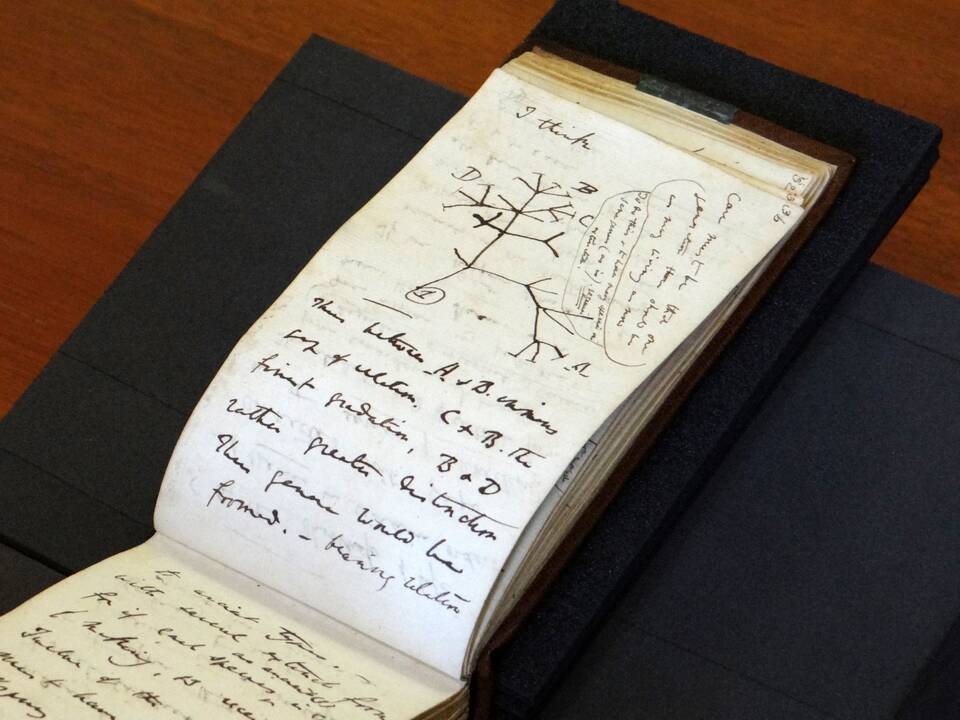 I think
B
D
C
A
1
36
Case must be that one
generation then should be
as many living as now
To do this & to have many species in
same genus (as is) requires
extinction
Thus between A & B. immense
gap of relation. C & B. the
finest gradation, B & D
rather greater distinction
Thus genera would be
formed. — bearing relation
to ancient types. —
with several extinct forms
for if each species
making, 13
Twelve of the
must have